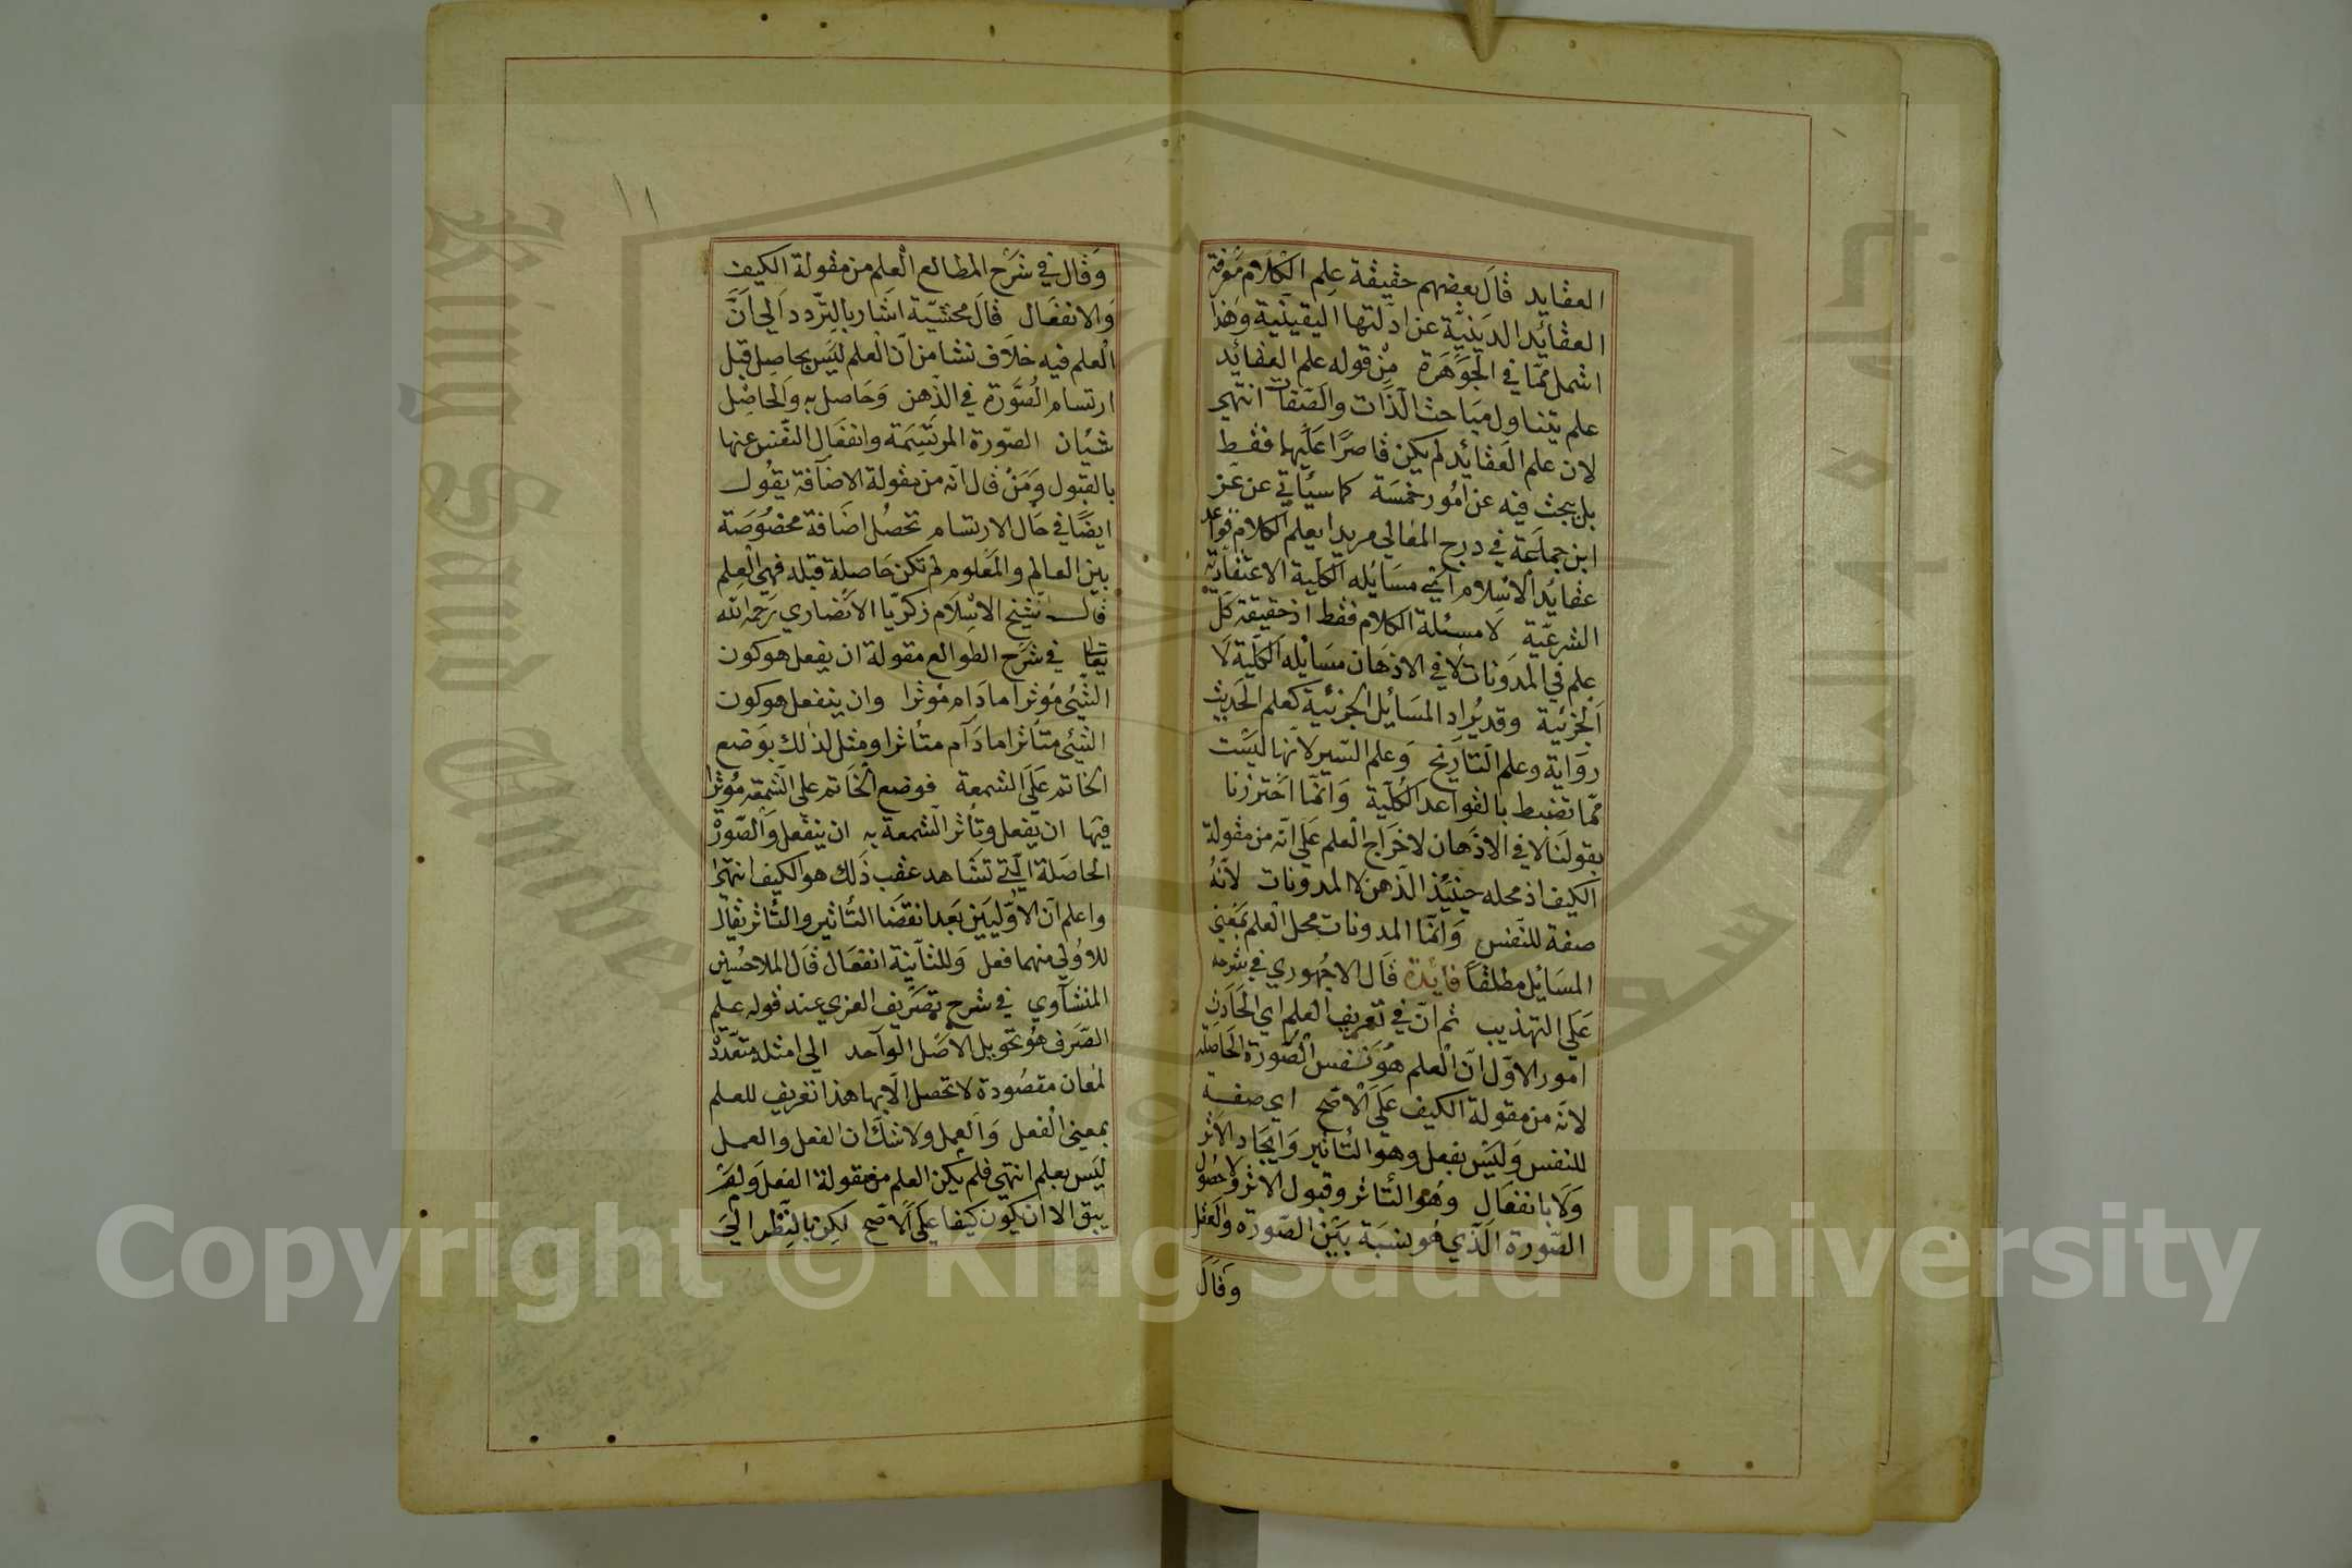 العقايد قال بعضهم حقيقة علم الكلام معرفة
العقائد الدينية عن ادلتها اليقينية وهذا
اشمل مما في الجوهرة من قوله علم العقائد
علم يتناول مباحث الذات والصفات انتهى
لان علم العقائد لم يكن قاصرا عليها فقط
بل يبحث فيه عن امور خمسة كما سيأتي عن عز
ابن جماعة في درج المعالي مريدا بعلم الكلام قواعد
عقايد الاسلام اي مسايله الكلية الاعتقادية
الشرعية لا مسئلة الكلام فقط اذ حقيقة كل
علم في المدونات لا في الاذهان مسايله الكلية لا
الجزئية وقد يراد المسايل الجزئية كعلم الحديث
رواية وعلم التاريخ وعلم السير لانها ليست
مما تضبط بالقواعد الكلية وانما احترزنا
بقولنا لا في الاذهان لاخراج العلم على انه من مقولة
الكيف اذ محله حينئذ الذهن لا المدونات لانه
صفة للنفس وانما المدونات محل العلم بمعنى
المسايل مطلقا فايدة قال الاجهوري في شرحه
على التهذيب ثم ان في تعريف العلم اي الحادث
امور الاول ان العلم هو نفس الصورة الحاصلة
لانه من مقولة الكيف على الاصح اي صفة
للنفس وليس بفعل وهو التأثير وايجاد الاثر
ولا بانفعال وهو التأثر وقبول الاثر ولا حصول
الصورة الذي هو نسبة بين الصورة والعقل
وقال
١١
وقال في شرح المطالع العلم من مقولة الكيف
والانفعال قال محشيه اشار بالتردد الى ان
العلم فيه خلاف نشا من ان العلم ليس بحاصل قبل
ارتسام الصورة في الذهن وحاصل به والحاصل
شيئان الصورة المرتسمة وانفعال النفس عنها
بالقبول ومن قال انه من مقولة الاضافة يقول
ايضا في حال الارتسام تحصل اضافة مخصوصة
بين العالم والمعلوم لم تكن حاصلة قبله فهي العلم
قال شيخ الاسلام زكريا الانصاري رحمه الله
تعالى في شرح الطوالع مقولة ان يفعل هو كون
الشيئ مؤثرا مادام مؤثرا وان ينفعل هو كون
الشيئ متأثرا مادام متأثرا ومثل لذلك بوضع
الخاتم على الشمعة فوضع الخاتم على الشمعه مؤثرا
فيها ان يفعل وتأثر الشمعة به ان ينفعل والصورة
الحاصلة التي تشاهد عقب ذلك هو الكيف انتهى
واعلم ان الاوليين بعد انقضا التأثير والتأثر يقال
للاولى منهما فعل وللثانية انفعال قال الملا حسين
المنشاوي في شرح تصريف العزي عند قوله علم
الصرف هو تحويل الاصل الواحد الى امثلة متعددة
لمعان مقصودة لا تحصل الا بها هذا تعريف للعلم
بمعنى الفعل والعمل ولا شك ان الفعل والعمل
ليس بعلم انتهى فلم يكن العلم من مقولة الفعل ولم
يبق الا ان يكون كيفا على الاصح لكن بالنظر الى
Copyright © King Saud University